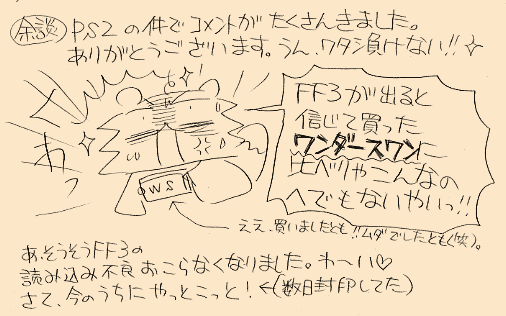 余談 PS2の件でコメントがたくさんきました。
ありがとうございます。うん、ワタシ負けない!!
FF3が出ると
信じて買った
ワンダースワンに
比べりゃこんなの
へでもないやいっ!!
WS
ええ、買いましたとも!!ムダでしたとも(笑)。
あ、そうそうFF3の
読み込み不良おこらなくなりました。わ〜い♡
さて、今のうちにやっとこっと!←(数日封印してた)